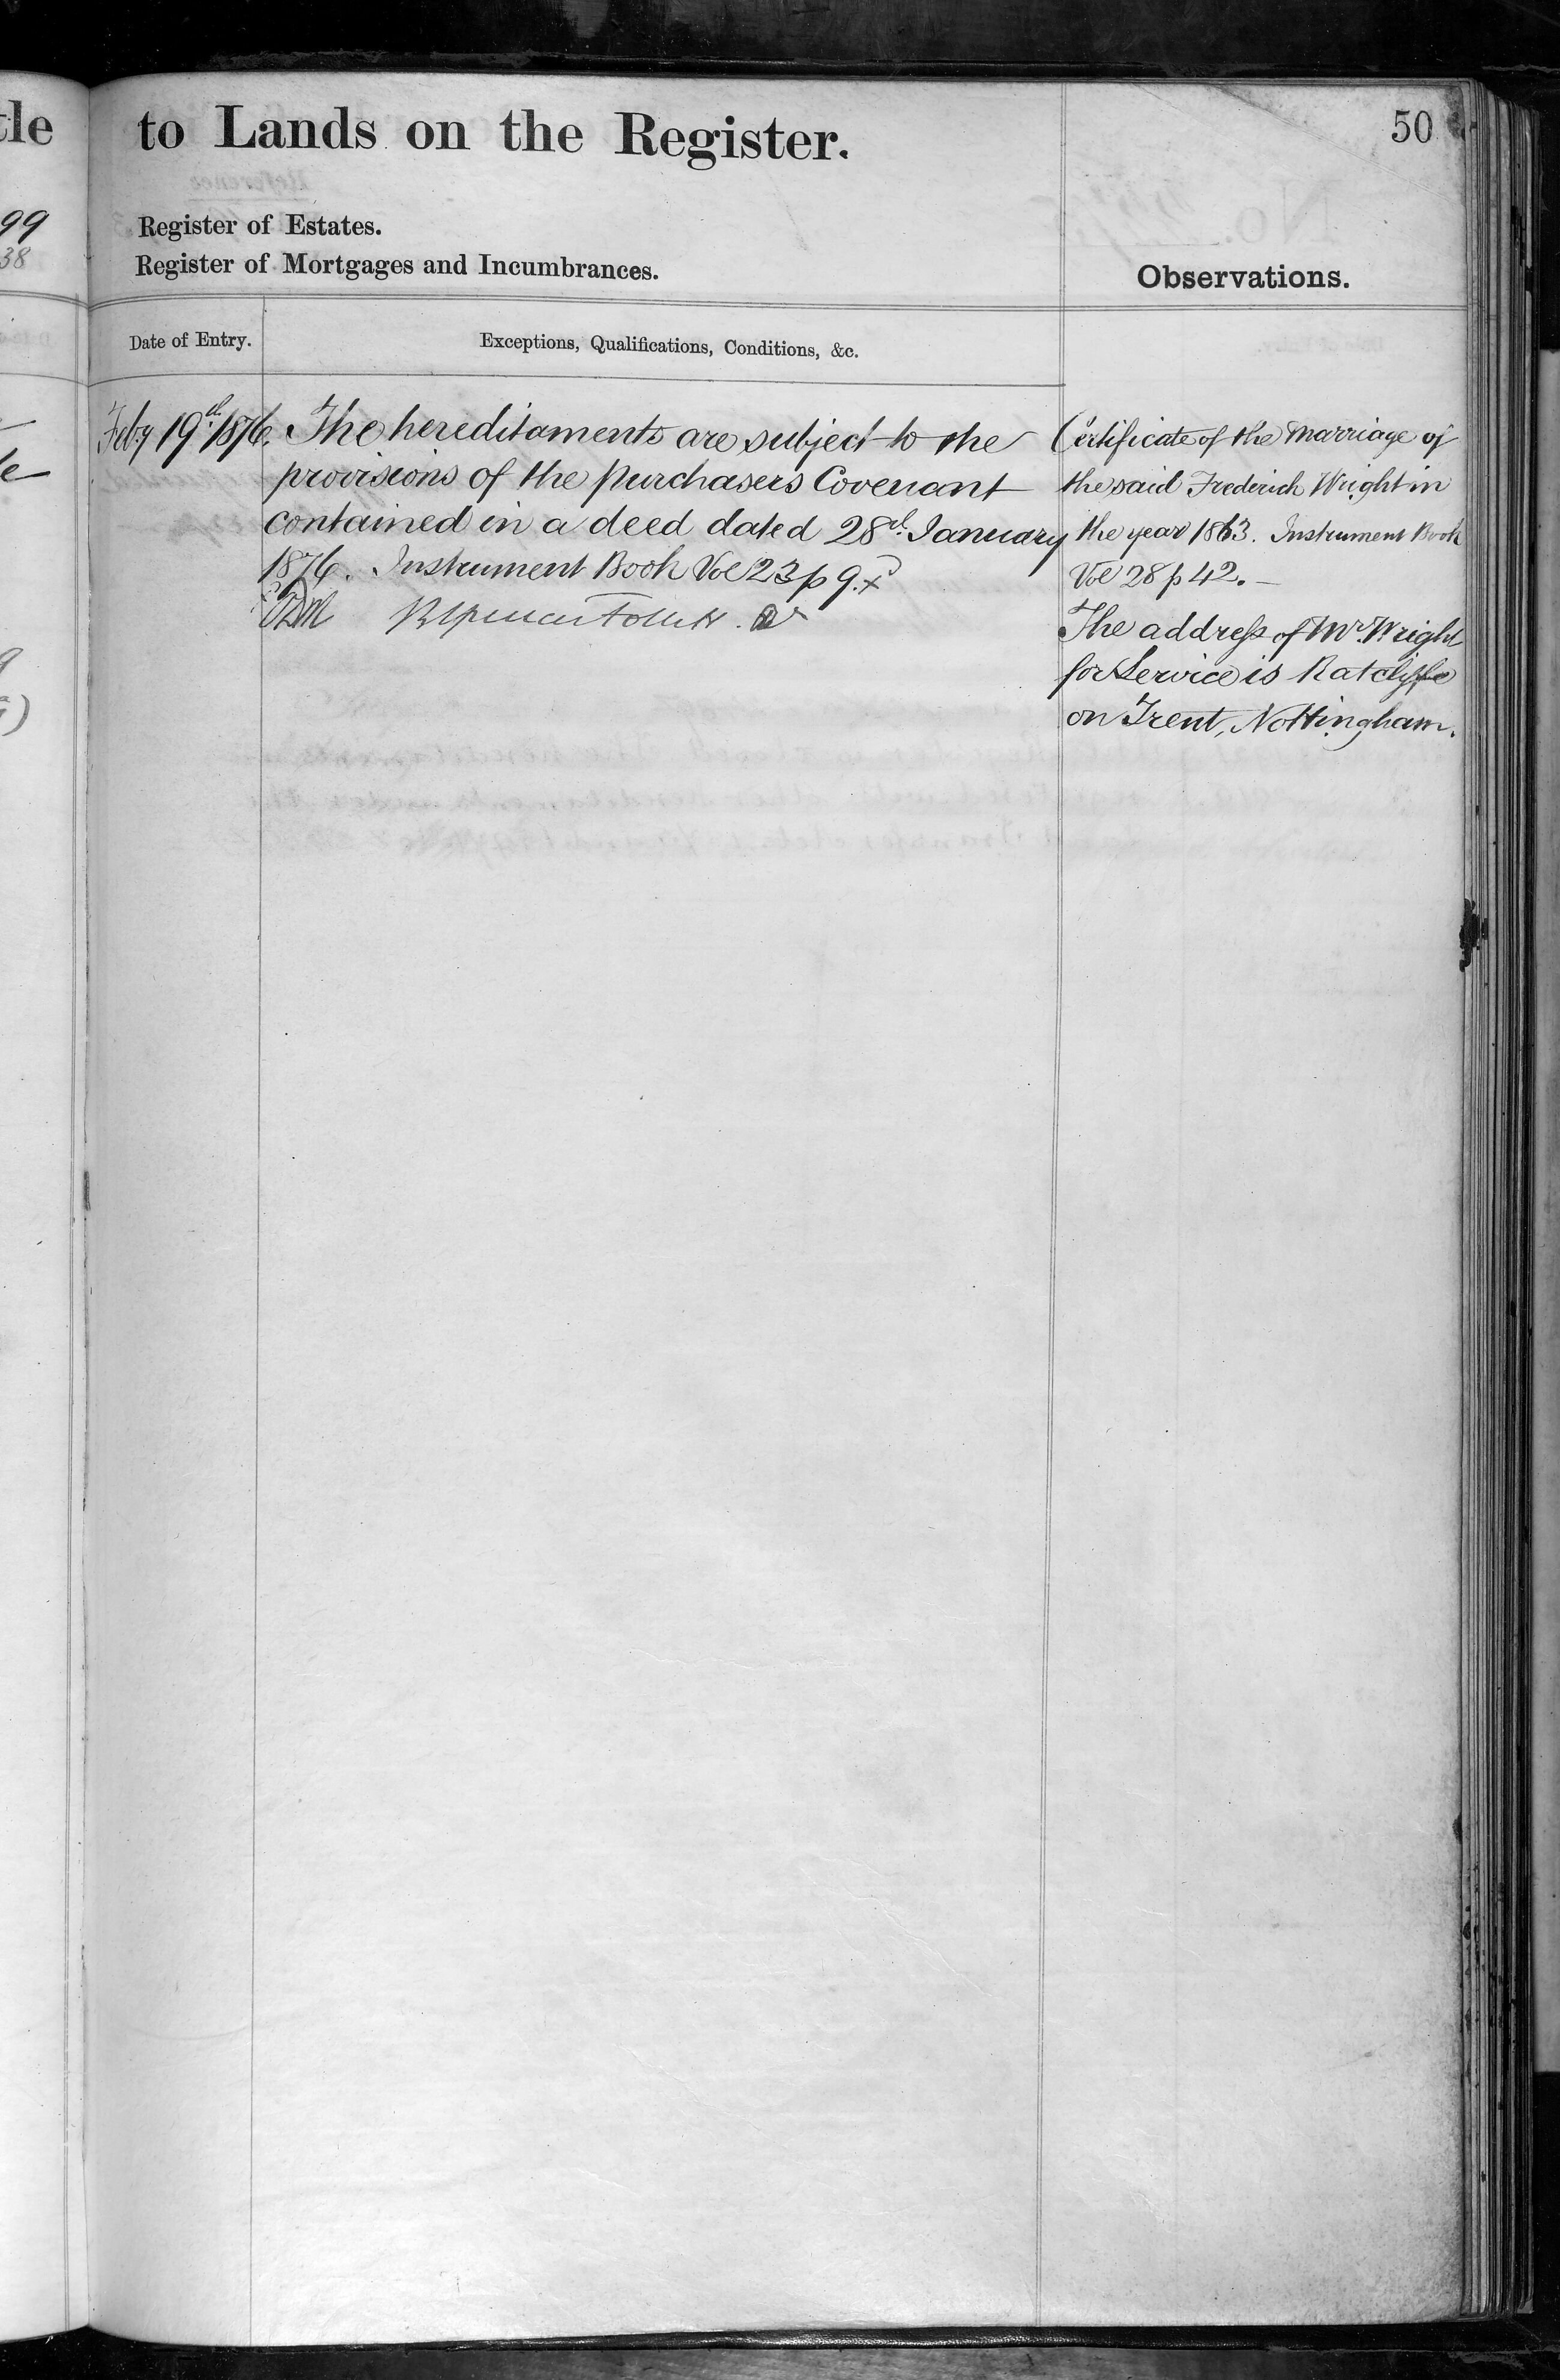 tle
99
38
to Lands on the Register.
50
Register of Estates.
Register of Mortgages and Incumbrances.
Observations.
Date of Entry.
Exceptions, Qualifications, Conditions, &c.
Feby 19th 1876. The hereditaments are subject to the
provisions of the purchasers Covenant
contained in a deed dated 28th January
1876. Instrument Book Vol 23 p 9. x
Certificate of the Marriage of
the said Frederick Wright in
the year 1863. Instrument Book
Vol 28 p 42. —
The address of Mr. Wright
for Service is Ratcliffe
on Trent, Nottingham.